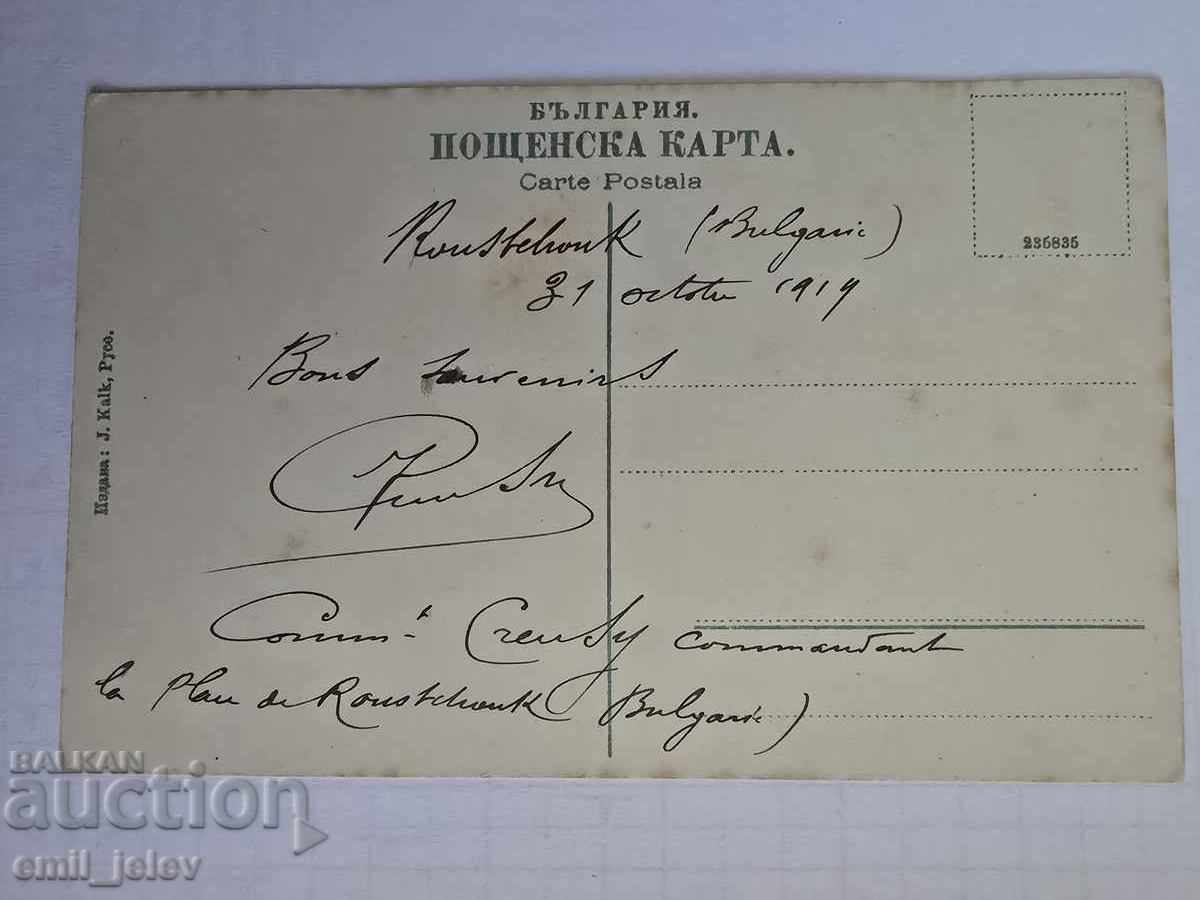 БЪЛГАРИЯ.
ПОЩЕНСКА КАРТА.
Carte Postala
235835
Roustchouk (Bulgarie)
31 octobre 1919
Bons souvenirs
Comm.t Creusy commandant
la Place de Roustchouk Bulgarie)
Издава: J. Kalk, Русе.
BALKAN
auction
emil_jelev